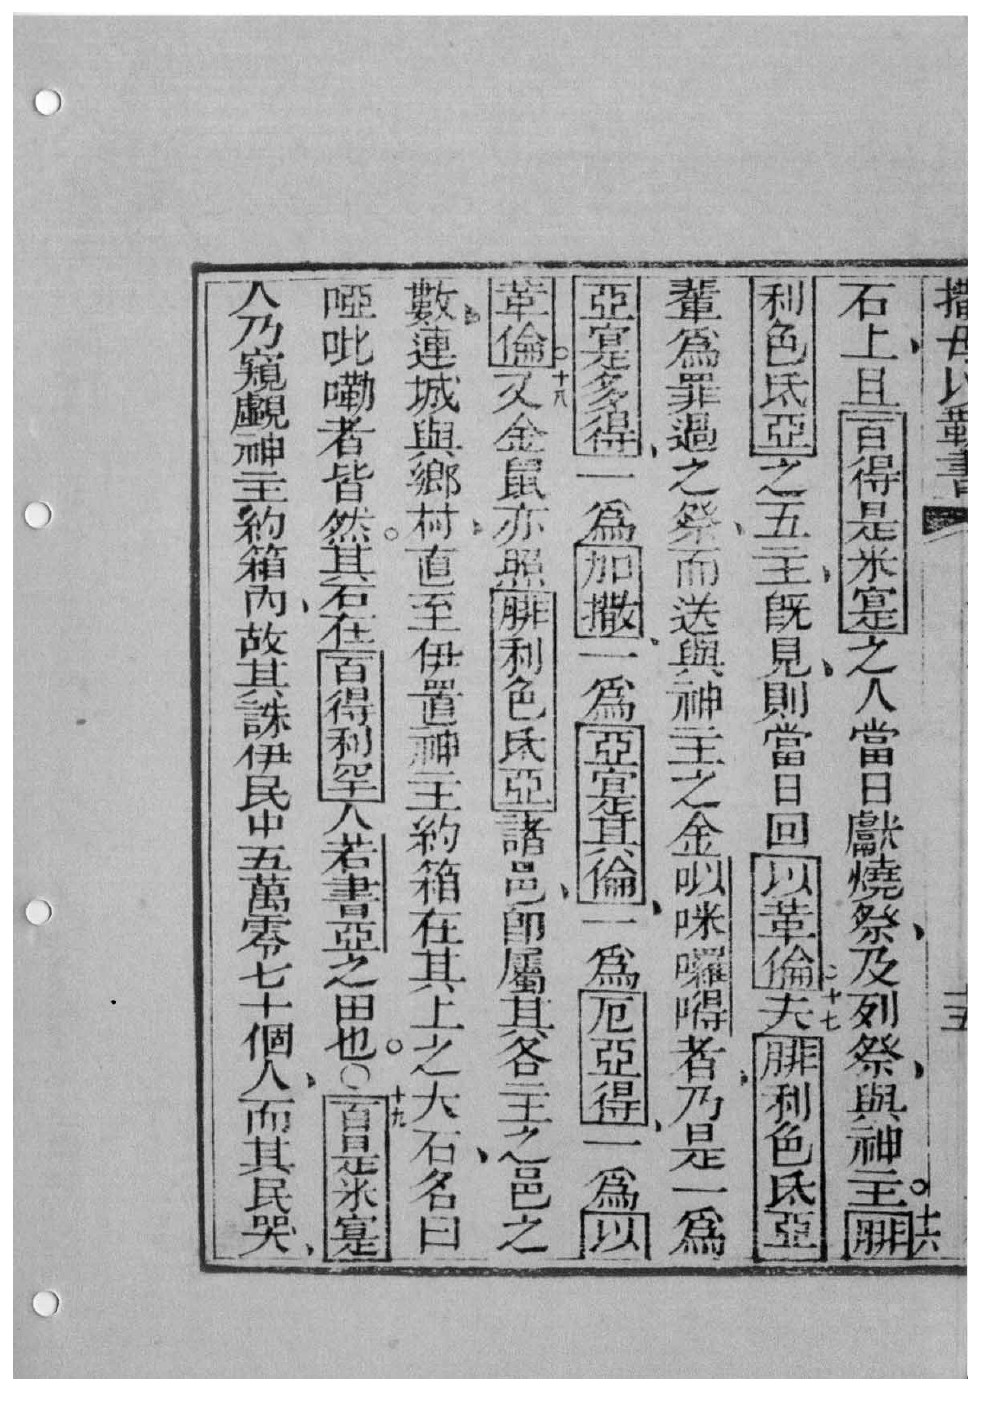 撒母以勒書
十五
石上且百得是米寔之人當日獻燒祭及列祭與神主。十六腓
利色氐亞之五主既見則當日回以革倫。十七夫腓利色氐亞
輩爲罪過之祭而送與神主之金㕥咪囉嘚者乃是一爲
亞寔多得一爲加撒一爲亞寔其倫一爲厄亞得一爲以
革倫。十八又金鼠亦照腓利色氐亞諸邑卽屬其各主之邑之
數連城與鄉村直至伊置神主約箱在其上之大石名曰
啞吡嘞者皆然。其石在百得利罕人若書亞之田也。○十九百是米寔
人乃窺覷神主約箱內故其誅伊民中五萬零七十個人而其民哭